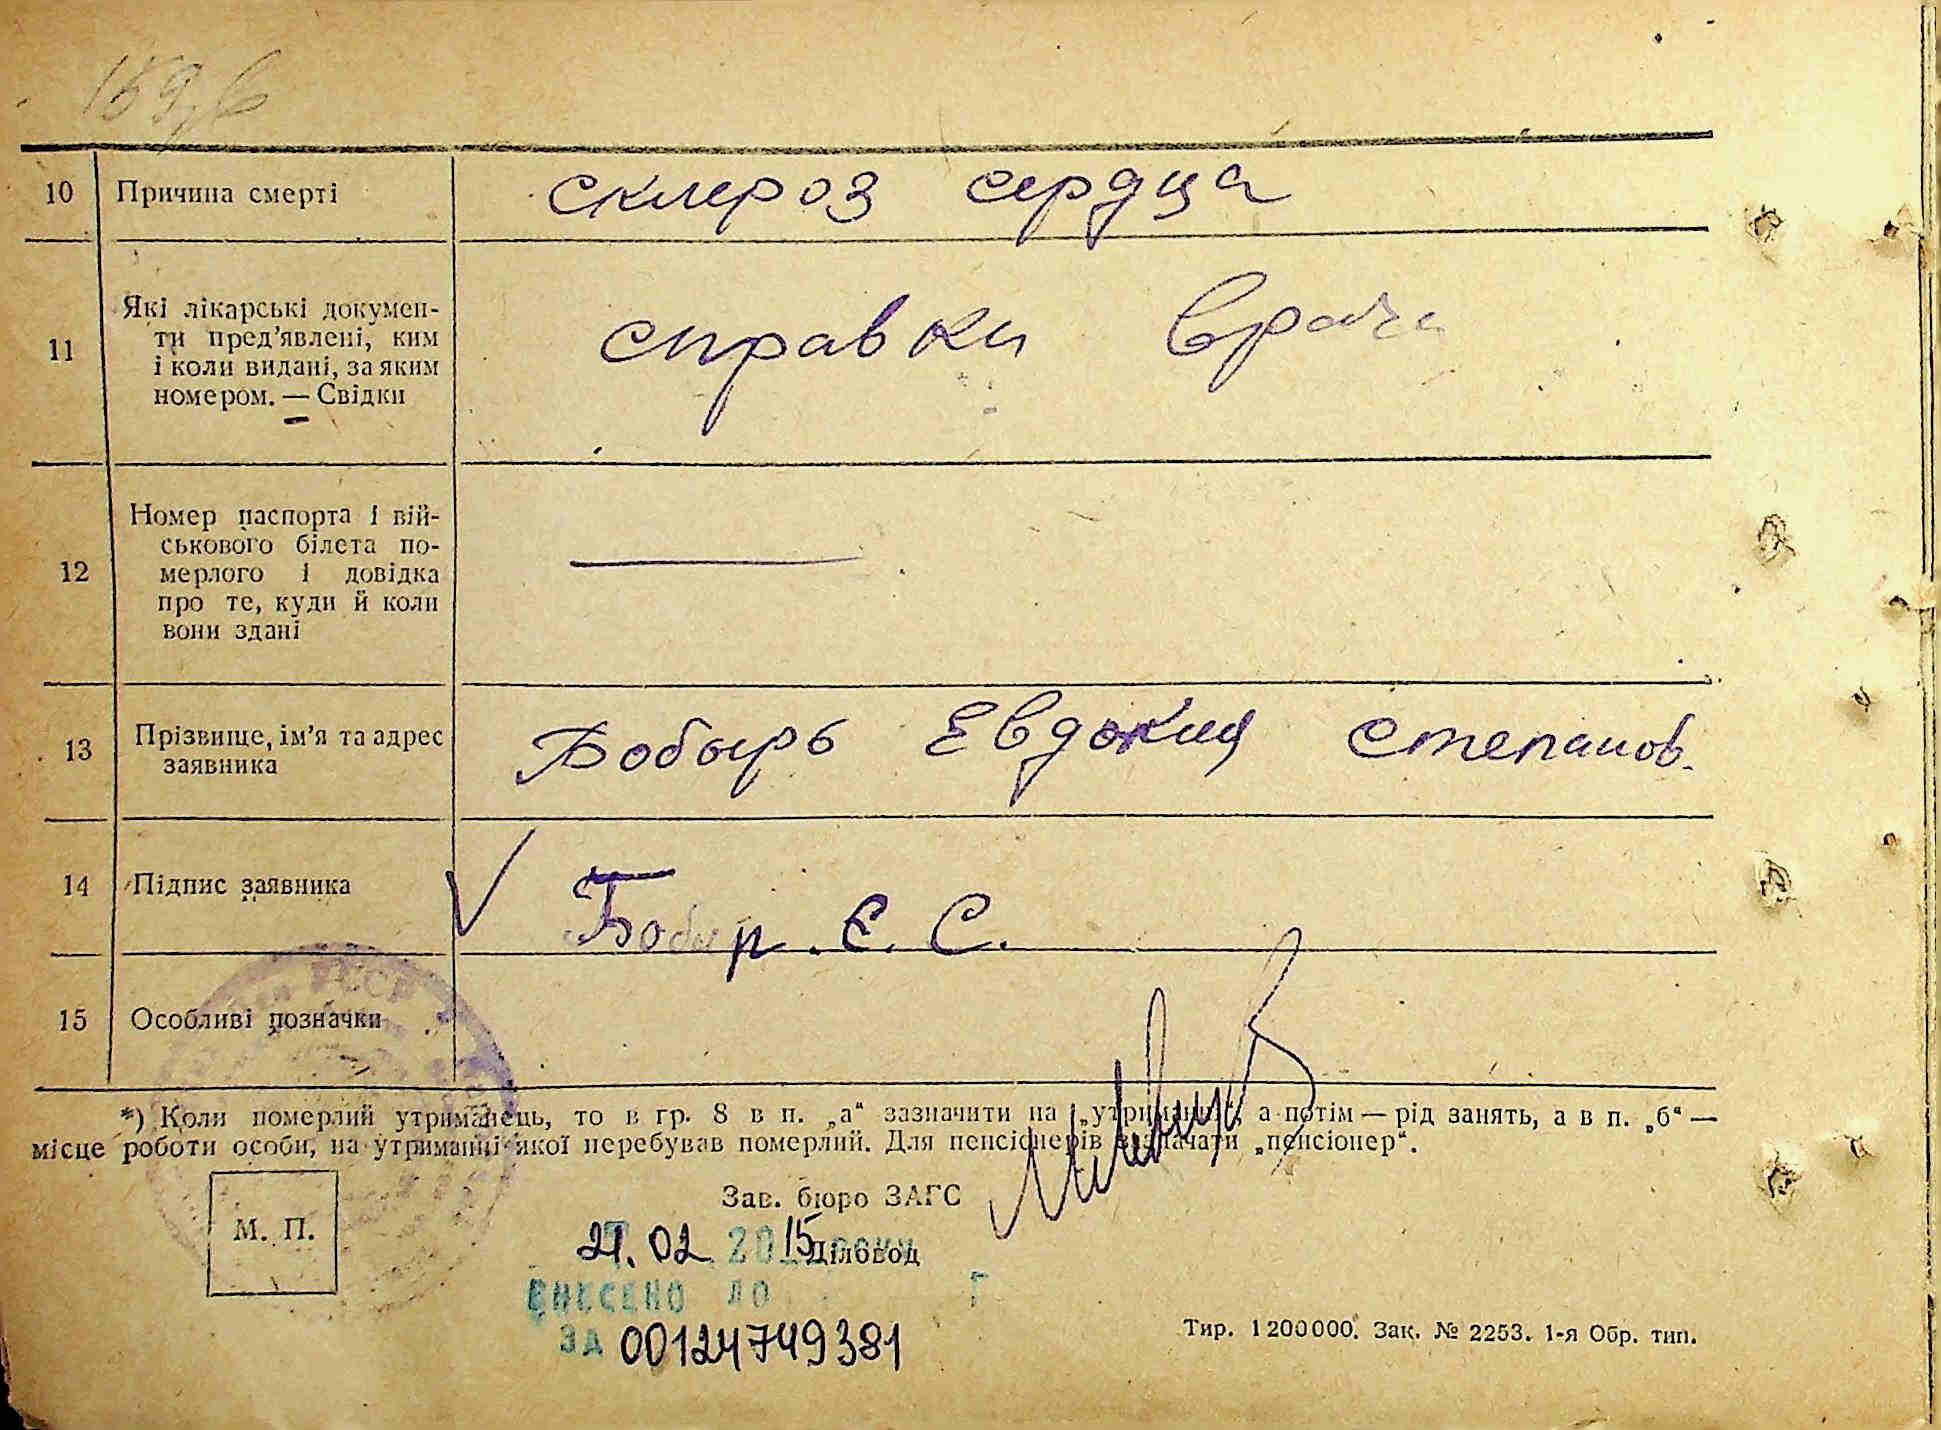 159
10 Причина смерті склероз сердца
11 Які лікарські докумен-
ти пред'явлені, ким
і коли видані, за яким
номером. — Свідки
справки врача
12 Номер паспорта і вій-
ськового білета по-
мерлого і довідка
про те, куди й коли
вони здані
13 Прізвище, ім'я та адрес
заявника
Бобырь Евдокия Степанов.
14 Підпис заявника Бобир. Є. С.
15 Особливі позначки
*) Коли померлий утриманець, то в гр. 8 в п. „а“ зазначити на „утриманні“, а потім — рід занять, а в п. „б“ —
місце роботи особи, на утриманні якої перебував померлий. Для пенсіонерів зазначати „пенсіонер“.
Зав. бюро ЗАГС
М. П.
02 2015 Діловод
ВНЕСЕНО ДО
ЗА 00124749381
Тир. 1200000. Зак. № 2253. 1-я Обр. тип.